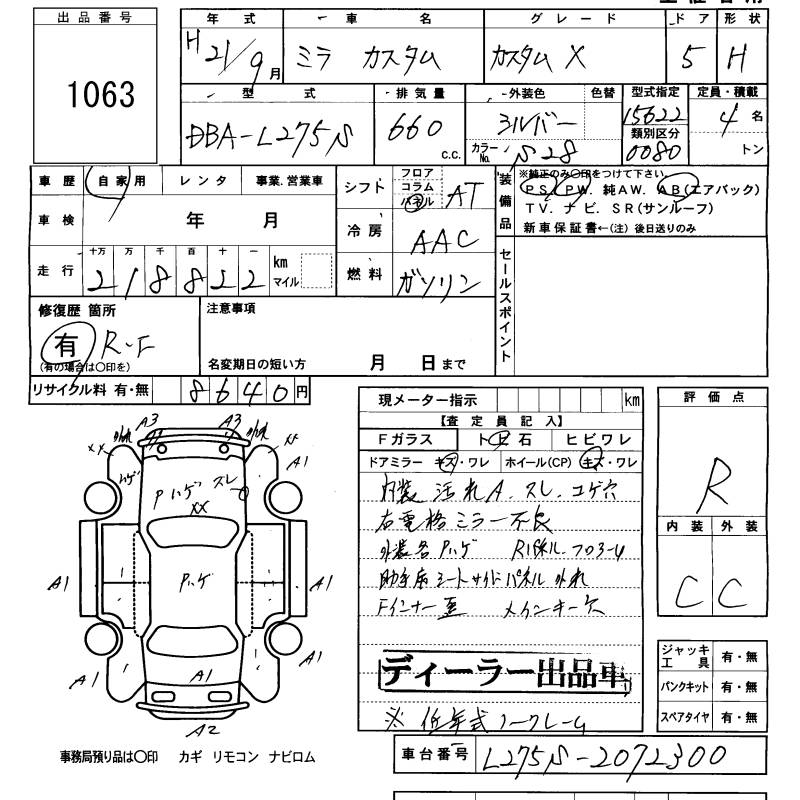 出品番号
1063
年式 車名 グレード ドア 形状
H21/9月 ミラ カスタム カスタム X 5 H
型式 排気量 外装色 色替 型式指定 定員・積載
DBA-L275S 660 c.c. シルバー 15622 4名
カラーNo. S28 類別区分 0080 トン
車歴 自家用 レンタ 事業.営業車
シフト フロア コラム パネル AT
車検 年 月
冷房 AAC
走行 十万 万 千 百 十 一
218822 km マイル
燃料 ガソリン
装備品 ※純正のみ〇印をつけて下さい。
PS. PW. 純AW. AB(エアバック)
TV. ナビ. SR(サンルーフ)
新車保証書←(注) 後日送りのみ
セールスポイント
修復歴 箇所
有 R-F
(有の場合は〇印を)
注意事項
名変期日の短い方 月 日まで
リサイクル料 有・無 8640円
現メーター指示 km
【査定員記入】
Fガラス トビ石 ヒビワレ
ドアミラー キズ・ワレ ホイール(CP) キズ・ワレ
内装 汚れA. スレ. コゲ穴
右電格ミラー不良
外装各Pハゲ Rパネル.フロアーU
助手席シートサイドパネル外れ
Fインナー歪 メインキー穴
ディーラー出品車
※ 低年式ノークレーム
評価点
R
内装 外装
C C
ジャッキ工具 有・無
パンクキット 有・無
スペアタイヤ 有・無
A3 A3
外れ 外れ
XX XX
A1
ハゲ Pハゲ スレ
XX
A1 Pハゲ A1
A1 A1 A1
A2
事務局預り品は〇印 カギ リモコン ナビロム
車台番号 L275S-2072300